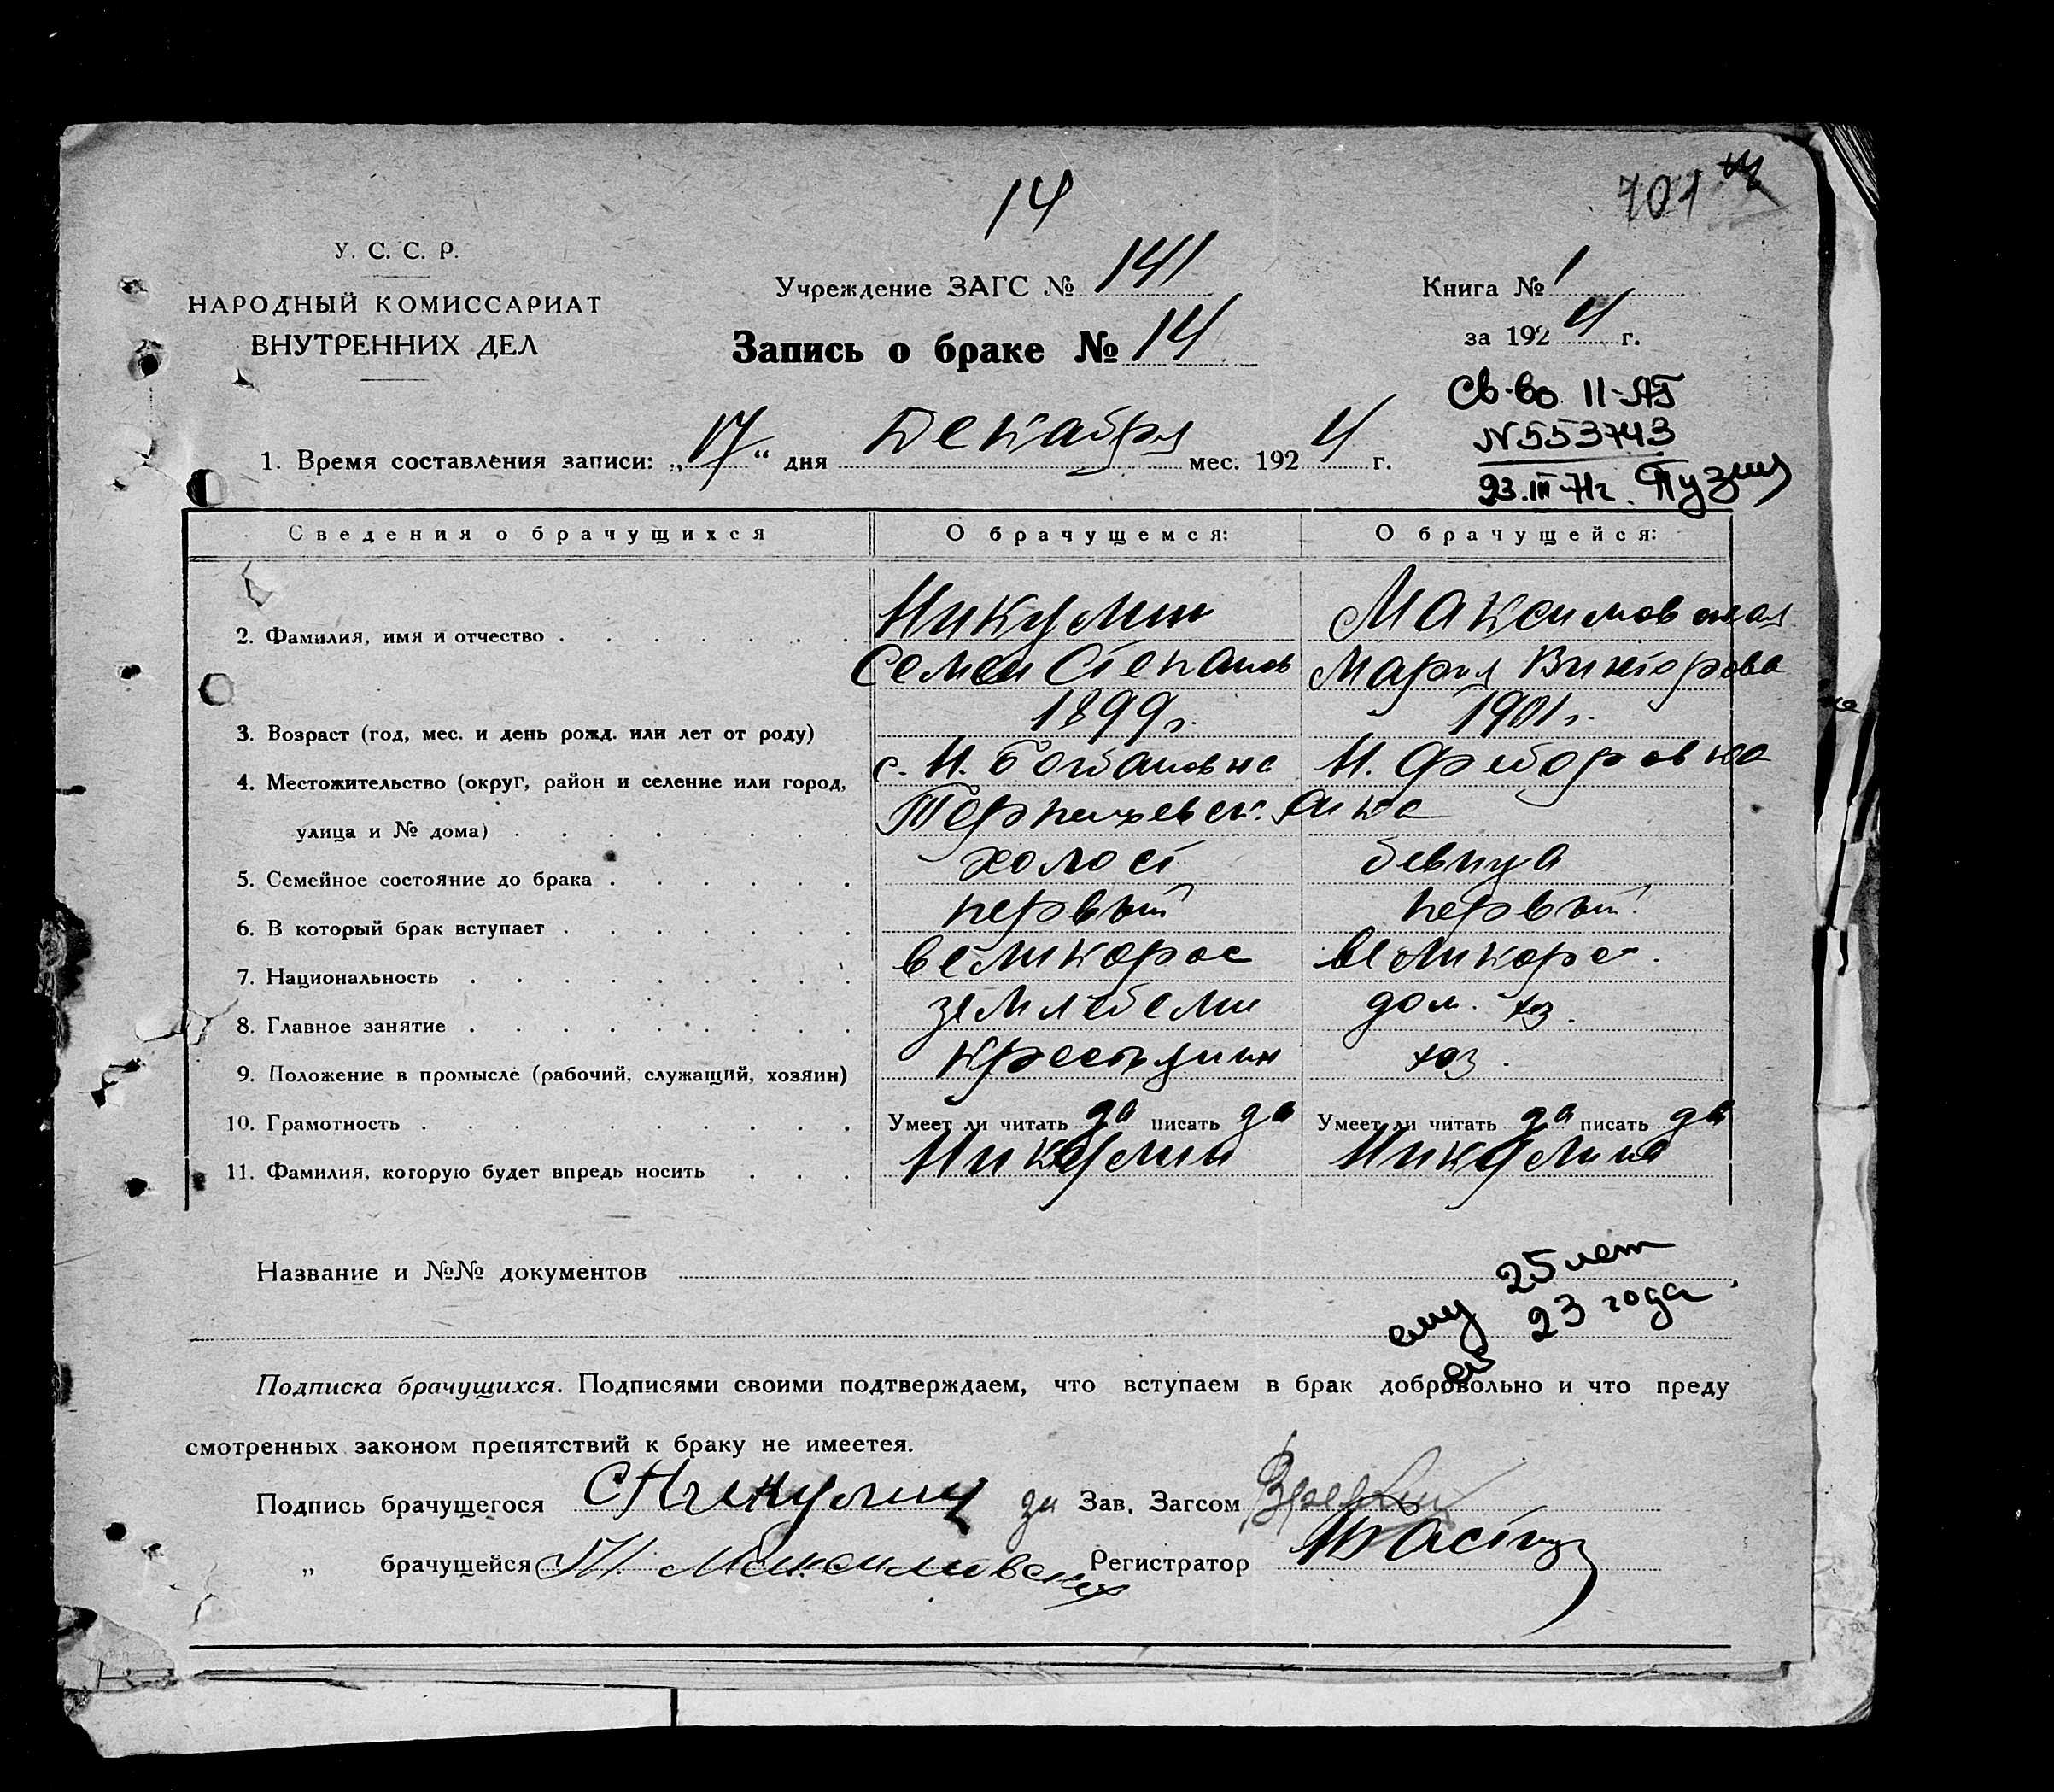 14
701
У. С. С. Р.
НАРОДНЫЙ КОМИССАРИАТ
ВНУТРЕННИХ ДЕЛ
Учреждение ЗАГС № 141
Запись о браке № 14
Книга № 1
за 1924 г.
Св-во II-ЯГ
N 553743
23.III-71г. Пузин
1. Время составления записи: „17“ дня Декабря мес. 1924 г.
Сведения о брачущихся О брачущемся: О брачущейся:
2. Фамилия, имя и отчество Никулин Максимовская
Семен Степанов Мария Викторова
3. Возраст (год, мес. и день рожд. или лет от роду) 1899г. 1901г.
4. Местожительство (округ, район и селение или город, с. Н. Богдановка Н. Федоровка
улица и № дома)
5. Семейное состояние до брака холост девица
6. В который брак вступает первый первый
7. Национальность великорос великорос.
8. Главное занятие дом. хоз.
9. Положение в промысле (рабочий, служащий, хозяин) крестьянин хоз.
10. Грамотность Умеет ли читать да писать да Умеет ли читать да писать да
11. Фамилия, которую будет впредь носить Никулин Никулина
Название и №№ документов
ему 25 лет
ей 23 года
Подписка брачущихся. Подписями своими подтверждаем, что вступаем в брак добровольно и что преду
смотренных законом препятствий к браку не имеетея.
Подпись брачущегося СНикулин за Зав. Загсом
„ брачущейся М. Максимовская Регистратор